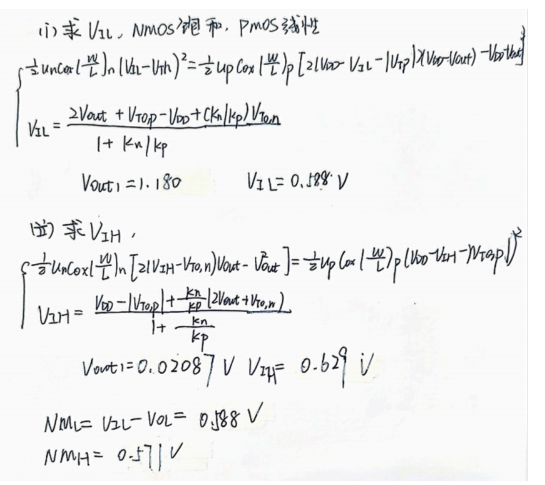 (i) 求 VIL, NMOS饱和, PMOS线性
½ unCox(W/L)n (VIL-Vth)² = ½ up Cox (W/L)p [2(VDD-VIL-|VTp|)(VDD-Vout)-(VDD-Vout)²]
VIL = (2Vout + VTO,p - VDD + (kn/kp)VTO,n) / (1 + kn/kp)
Vout1 = 1.180 VIL = 0.588 V
求 VIH,
½ unCox(W/L)n [2(VIH-VTO,n)Vout - Vout²] = ½ up Cox (W/L)p (VDD-VIH-|VTO,p|)²
VIH = (VDD - |VTO,p| + kn/kp (2Vout + VTO,n)) / (1 + kn/kp)
Vout1 = 0.02087 V VIH = 0.629 V
NML = VIL - VOL = 0.588 V
NMH = 0.571 V